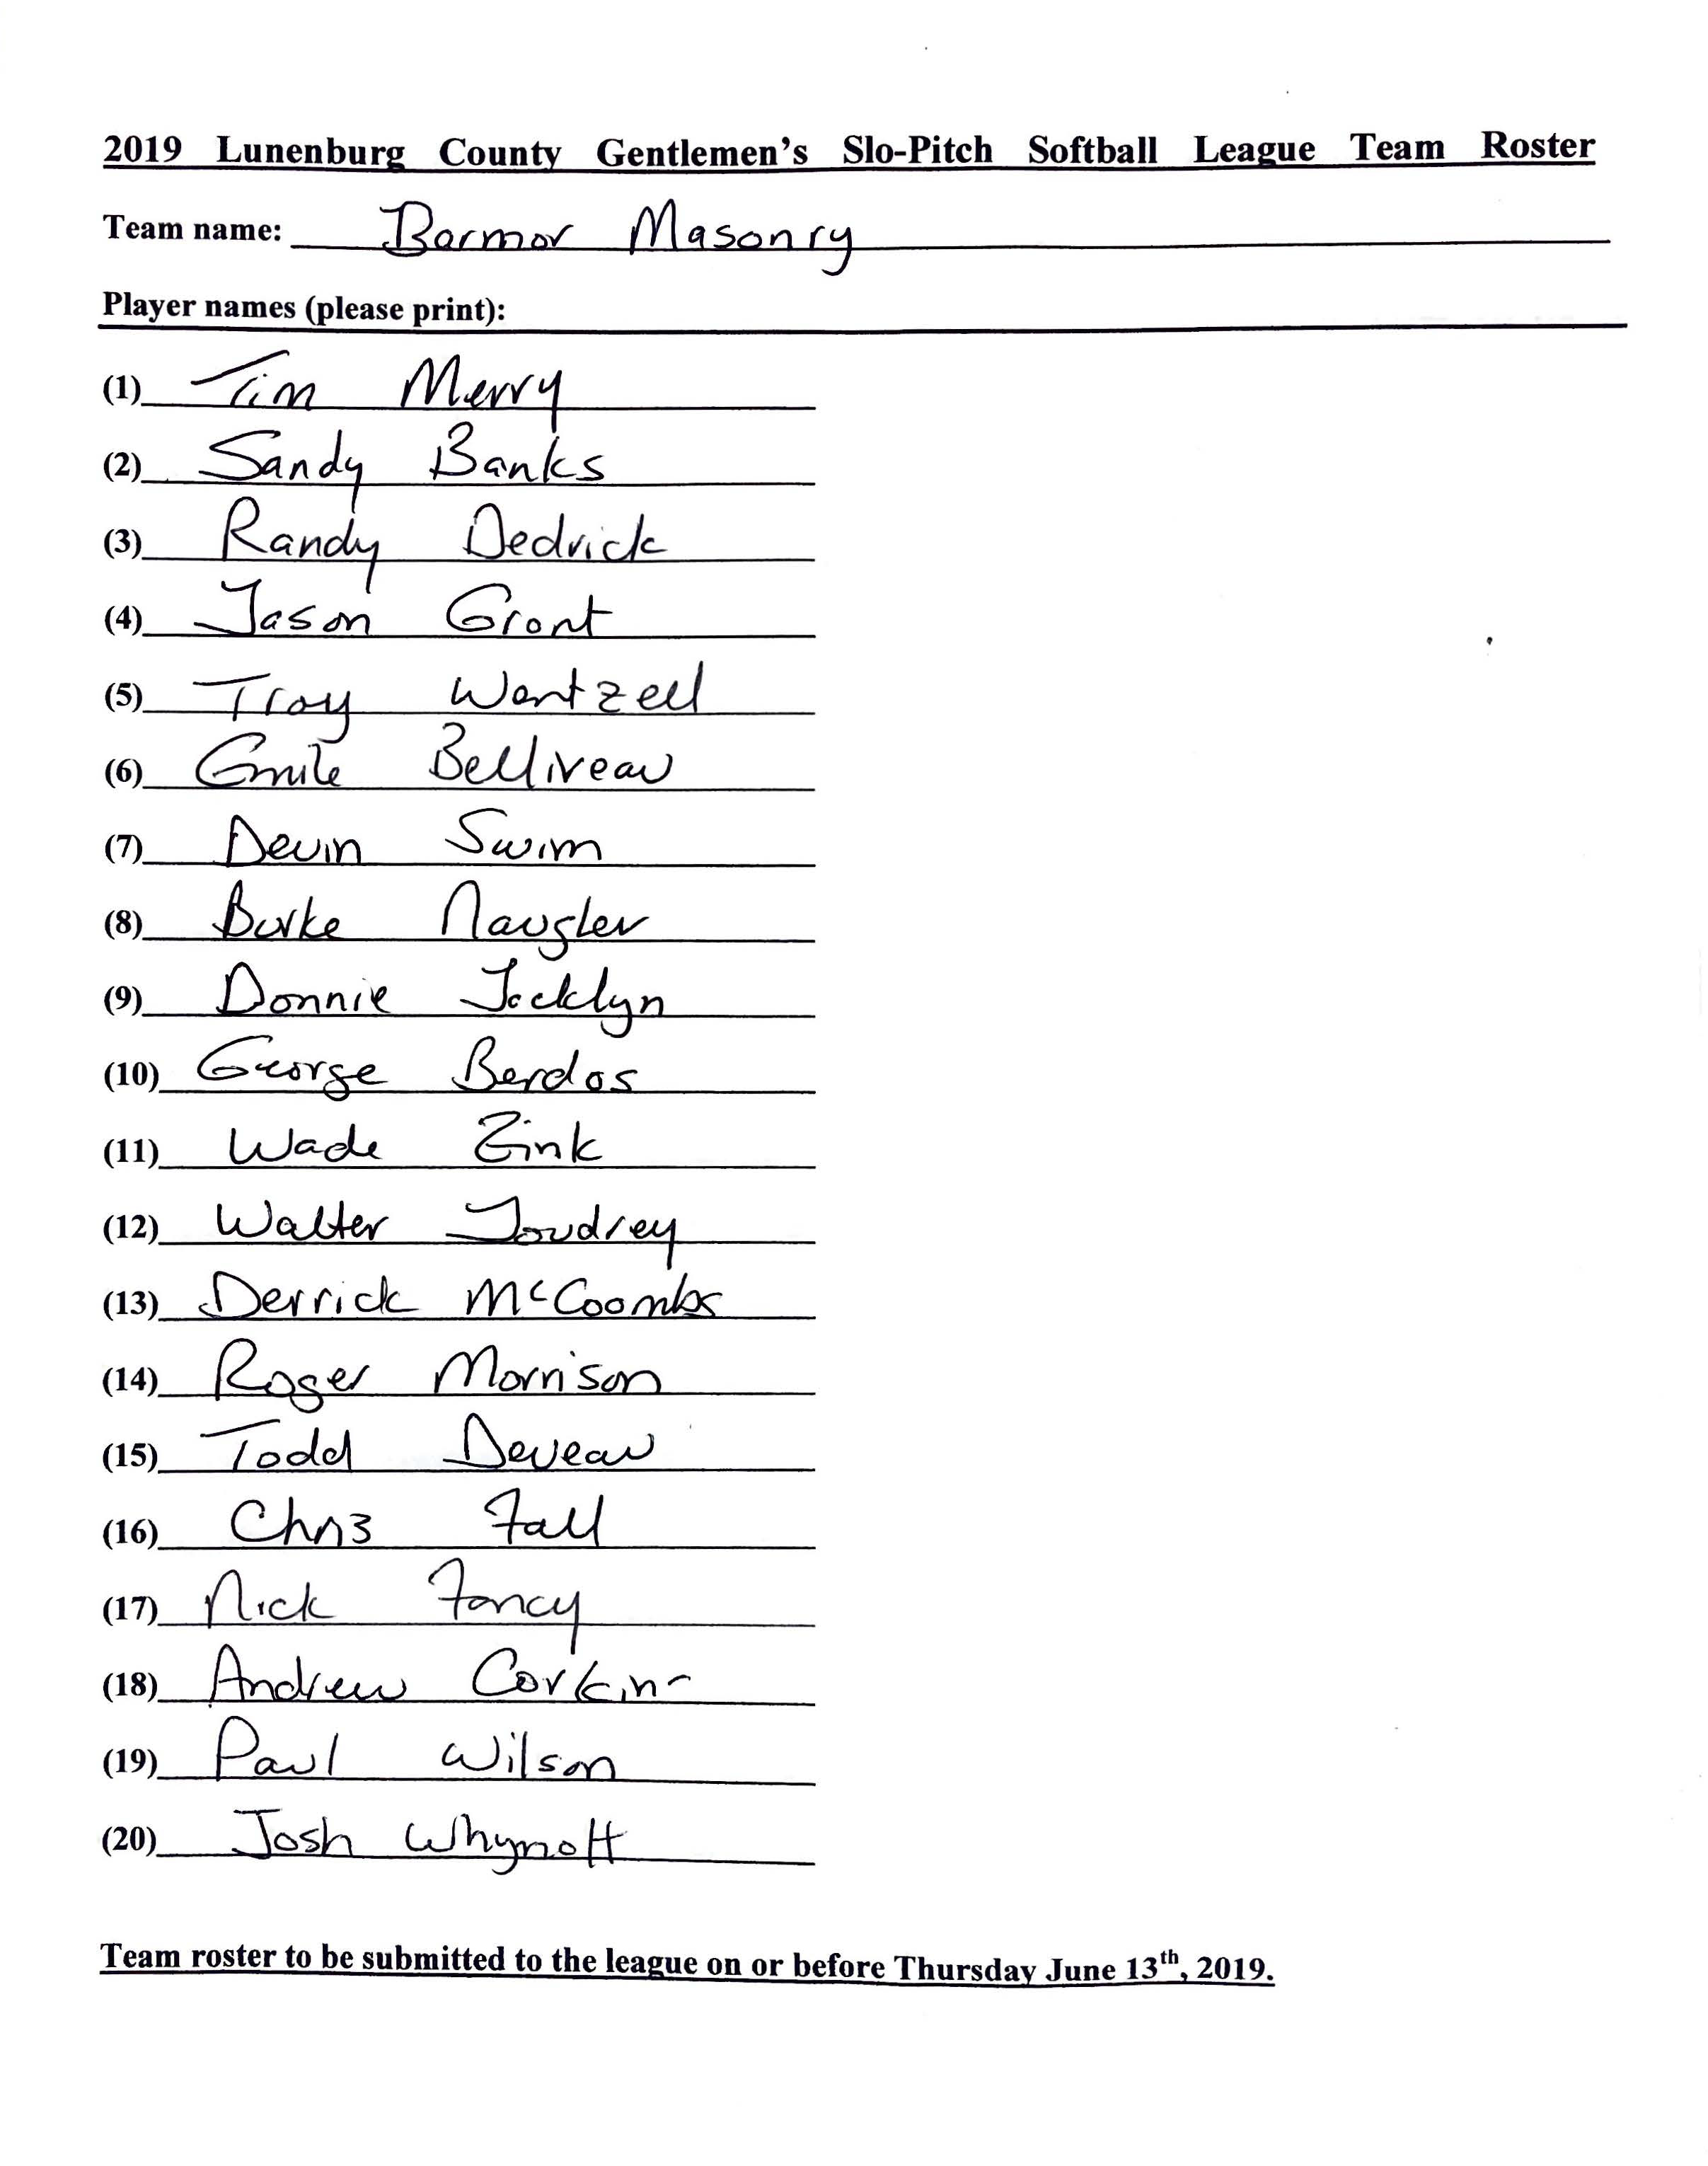 2019 Lunenburg County Gentlemen's Slo-Pitch Softball League Team Roster
Team name: Barmor Masonry
Player names (please print):
(1) Tim Merry
(2) Sandy Banks
(3) Randy Dedrick
(4) Jason Grant
(5) Troy Wentzell
(6) Emile Belliveau
(7) Devin Swim
(8) Burke Naugler
(9) Donnie Jacklyn
(10) George Berdos
(11) Wade Zink
(12) Walter Joudrey
(13) Derrick McCoombs
(14) Roger Morrison
(15) Todd Deveau
(16) Chris Fall
(17) Nick Fancy
(18) Andrew
(19) Paul Wilson
(20) Josh Whynott
Team roster to be submitted to the league on or before Thursday June 13th, 2019.